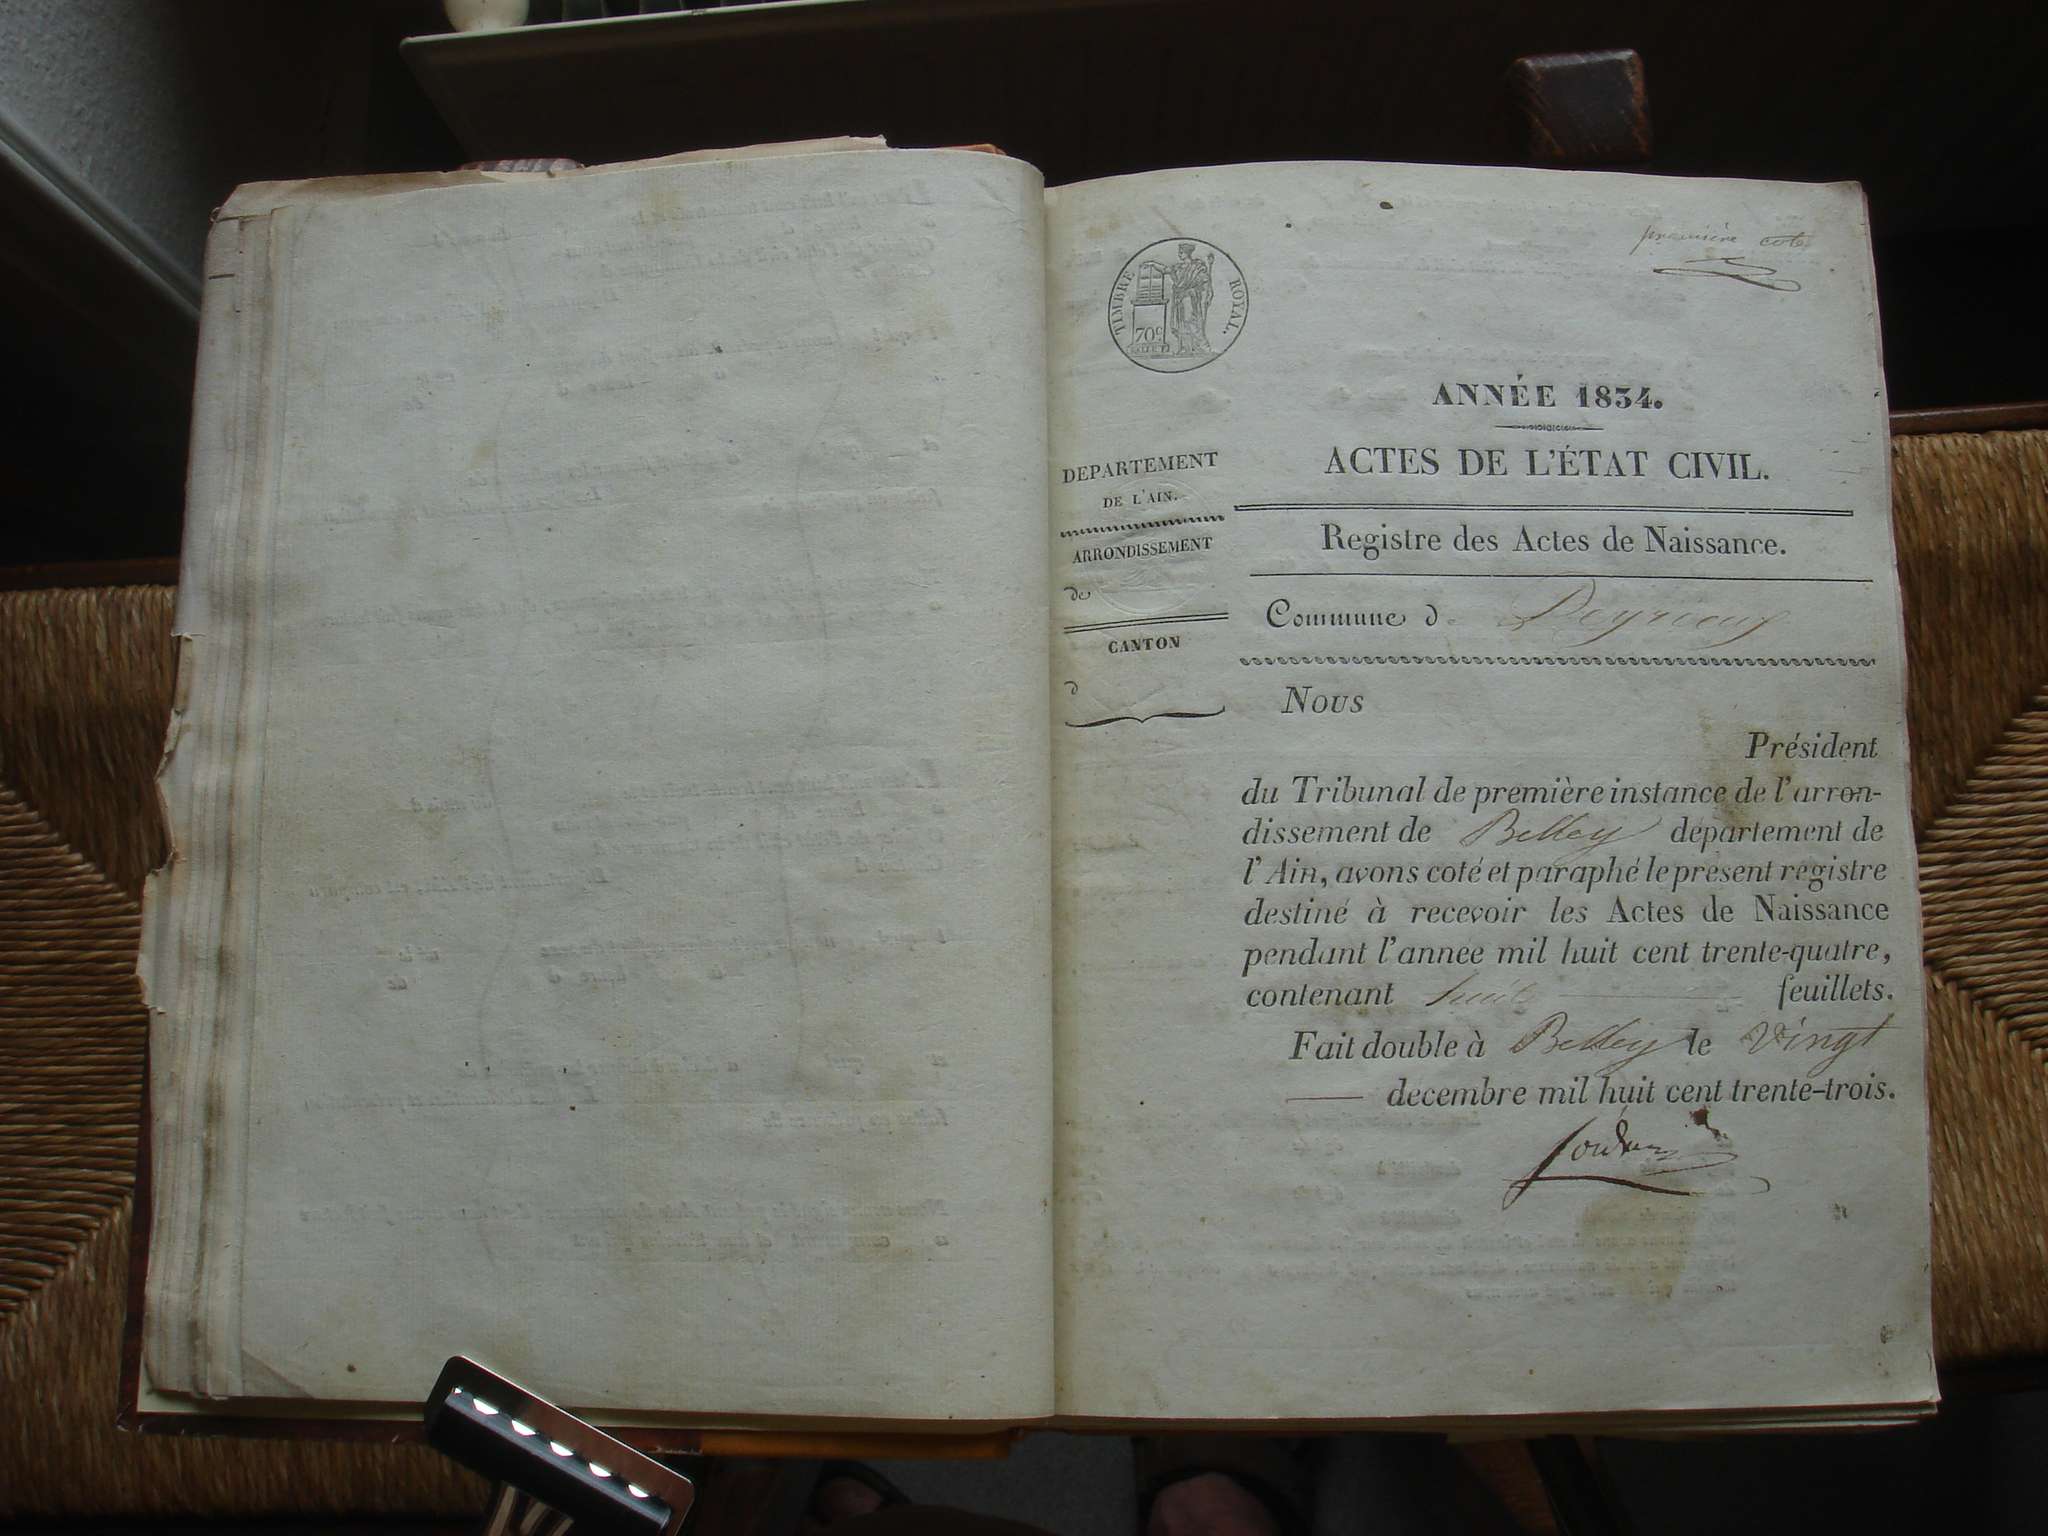 première cote
TIMBRE ROYAL.
70c
ANNÉE 1834.
ACTES DE L'ÉTAT CIVIL.
DEPARTEMENT
DE L'AIN.
ARRONDISSEMENT
de
CANTON
d
Registre des Actes de Naissance.
Commune d Peyrieux
Nous
Président
du Tribunal de première instance de l'arron-
dissement de Belley département de
l'Ain, avons coté et paraphé le présent registre
destiné à recevoir les Actes de Naissance
pendant l'annee mil huit cent trente-quatre,
contenant huit feuillets.
Fait double à Belley le Vingt
decembre mil huit cent trente-trois.